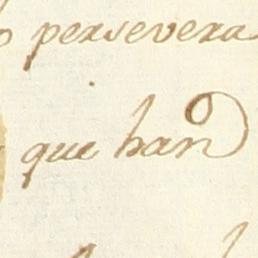 persevera
que han